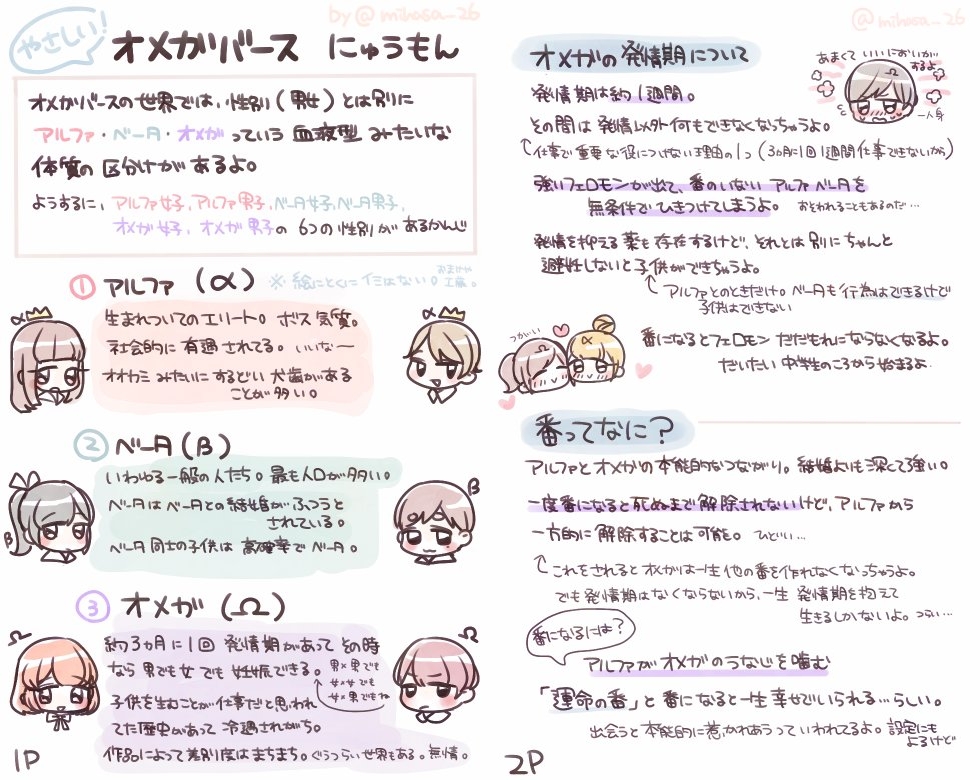 by @mihasa_26
やさしい!
オメガバース にゅうもん
オメガバースの世界では、性別(男女)とは別に
アルファ・ベータ・オメガっていう血液型みたいな
体質の区分けがあるよ。
ようするに、アルファ女子,アルファ男子,ベータ女子,ベータ男子,
オメガ女子,オメガ男子の6つの性別があるかんじ
① アルファ(α)
※絵にとくにイミはない。
生まれついてのエリート。ボス気質。
社会的に有遇されてる。いいな〜
オオカミみたいにするどい犬歯がある
ことが多い。
α
α
② ベータ(β)
いわゆる一般の人たち。最も人口が多い。
ベータはベータとの結婚がふつうと
されている。
ベータ同士の子供は高確率でベータ。
β
β
③ オメガ(Ω)
約3ヵ月に1回発情期があってその時
なら男でも女でも妊娠できる。
男×男でも
女×女でも
女×男でもね
子供を生むことが仕事だと思われ
てた歴史があって冷遇されがち。
作品によって差別度はまちまち。ぐうつらい世界もある。無情。
Ω
Ω
1P
@mihasa_26
オメガの発情期について
あまくていいにおいが
するよ
一人身
発情期は約1週間。
その間は発情以外何もできなくなっちゃうよ。
仕事で重要な役につけない理由の1つ(3ヵ月に1回1週間仕事できないから)
強いフェロモンが出て、番のいないアルファベータを
無条件でひきつけてしまうよ。おそわれることもあるのだ…
発情を抑える薬も存在するけど、それとは別にちゃんと
避妊しないと子供ができちゃうよ。
アルファとのときだけ。ベータも行為はできるけど
子供はできない
つがい
番になるとフェロモンだだもれにならなくなるよ。
だいたい中学生のころから始まるよ
番ってなに?
アルファとオメガの本能的なつながり。結婚よりも深くて強い。
一度番になると死ぬまで解除されないけど、アルファから
一方的に解除することは可能。ひどい…
これをされるとオメガは一生他の番を作れなくなっちゃうよ。
でも発情期はなくならないから、一生発情期を抱えて
生きるしかないよ。つらい…
番になるには?
アルファがオメガのうなじを噛む
「運命の番」と番になると一生幸せでいられる…らしい。
出会うと本能的に惹かれあうっていわれてるよ。設定にも
よるけど
2P